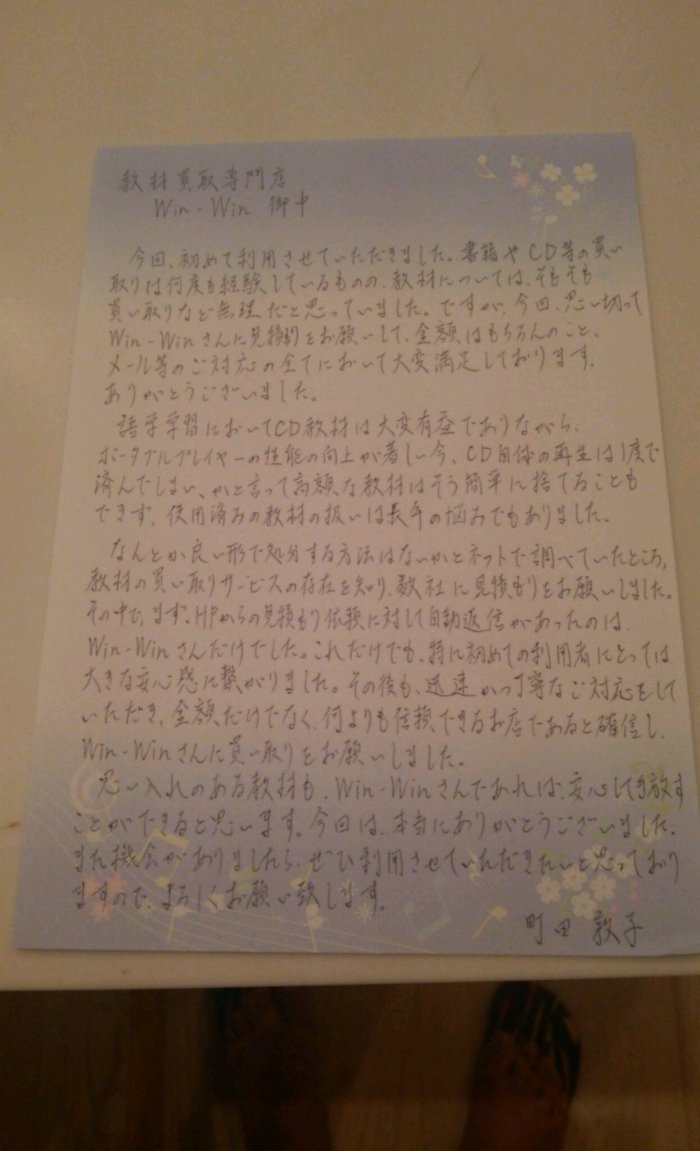 教材買取専門店
Win-Win 御中
今回、初めて利用させていただきました。書籍やCD等の買い
取りは何度も経験しているものの、教材については、そもそも
買い取りなど無理だと思っていました。ですが、今回、思い切って
Win-Winさんに見積りをお願いして、金額はもちろんのこと、
メール等のご対応の全てにおいて大変満足しております。
ありがとうございました。
語学学習においてCD教材は大変有益でありながら、
ポータブルプレイヤーの性能の向上が著しい今、CD自体の再生は1度で
済んでしまい、かと言って高額な教材はそう簡単に捨てることも
できず、使用済みの教材の扱いは長年の悩みでもありました。
なんとか良い形で処分する方法はないかとネットで調べていたところ、
教材の買い取りサービスの存在を知り、数社に見積もりをお願いしました。
その中で、まず、HPからの見積もり依頼に対して自動返信があったのは、
Win-Winさんだけでした。これだけでも、特に初めての利用者にとっては
大きな安心感に繋がりました。その後も、迅速かつ丁寧なご対応をして
いただき、金額だけでなく、何よりも信頼できるお店であると確信し、
Win-Winさんに買い取りをお願いしました。
思い入れのある教材も、Win-Winさんであれば、安心して手放す
ことができると思います。今回は、本当にありがとうございました。
また機会がありましたら、ぜひ利用させていただきたいと思っており
ますので、よろしくお願い致します。
町田 敦子